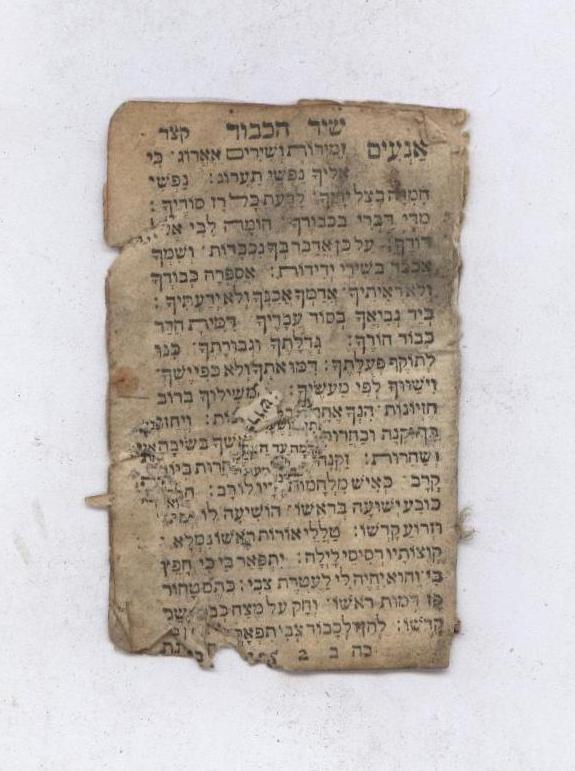 שיר הכבוד קצר
אַנְעִים זְמִירוֹת וְשִׁירִים אֶאֱרוֹג׃ כִּי
אֵלֶיךָ נַפְשִׁי תַעֲרוֹג׃ נַפְשִׁי
חָמְדָה בְּצֵל יָדֶךָ׃ לָדַעַת כָּל רָז סוֹדֶיךָ׃
מִדֵּי דַבְּרִי בִּכְבוֹדֶךָ׃ הוֹמֶה לִבִּי אֶל
דוֹדֶיךָ׃ עַל כֵּן אֲדַבֵּר בְּךָ נִכְבָּדוֹת׃ וְשִׁמְךָ
אֲכַבֵּד בְּשִׁירֵי יְדִידוֹת׃ אֲסַפְּרָה כְּבוֹדְךָ
וְלֹא רְאִיתִיךָ׃ אֲדַמְּךָ אֲכַנְּךָ וְלֹא יְדַעְתִּיךָ׃
בְּיַד נְבִיאֶךָ בְּסוֹד עֲבָדֶיךָ דִּמִּיתָ הֲדַר
כְּבוֹד הוֹדֶךָ׃ גְּדֻלָּתְךָ וּגְבוּרָתֶךָ׃ כִּנּוּ
לְתוֹקֶף פְּעֻלָּתֶךָ׃ דִּמּוּ אֹתְךָ וְלֹא כְּפִי יֶשְׁךָ׃
וַיְשַׁוּוּךָ לְפִי מַעֲשֶׂיךָ׃ מְשִׁילוּךָ בְּרוֹב
חֶזְיוֹנוֹת הִנְּךָ אֶחָד וְיֶחֱזוּ
בְךָ זִקְנָה וּבַחֲרוּת בְּשֵׂיבָה
וְשַׁחֲרוּת׃ זִקְנָה בְּיוֹם
קְרָב׃ כְּאִישׁ מִלְחָמוֹת יָדָיו לוֹ רָב׃
כּוֹבַע יְשׁוּעָה בְּרֹאשׁוֹ׃ הוֹשִׁיעָה לּוֹ
וּזְרוֹעַ קָדְשׁוֹ׃ טַלְלֵי אוֹרוֹת רֹאשׁוֹ נִמְלָא׃
קְוֻצּוֹתָיו רְסִיסֵי לָיְלָה׃ יִתְפָּאֵר בִּי כִּי חָפֵץ
בִּי׃ וְהוּא יִהְיֶה לִּי לַעֲטֶרֶת צְבִי׃ כֶּתֶם טָהוֹר
פָּז דְּמוּת רֹאשׁוֹ׃ וְחָק עַל מֵצַח כְּבוֹד שֵׁם
קָדְשׁוֹ׃ לְחֵן וּלְכָבוֹד צְבִי תִפְאָרָה
כה ב 2